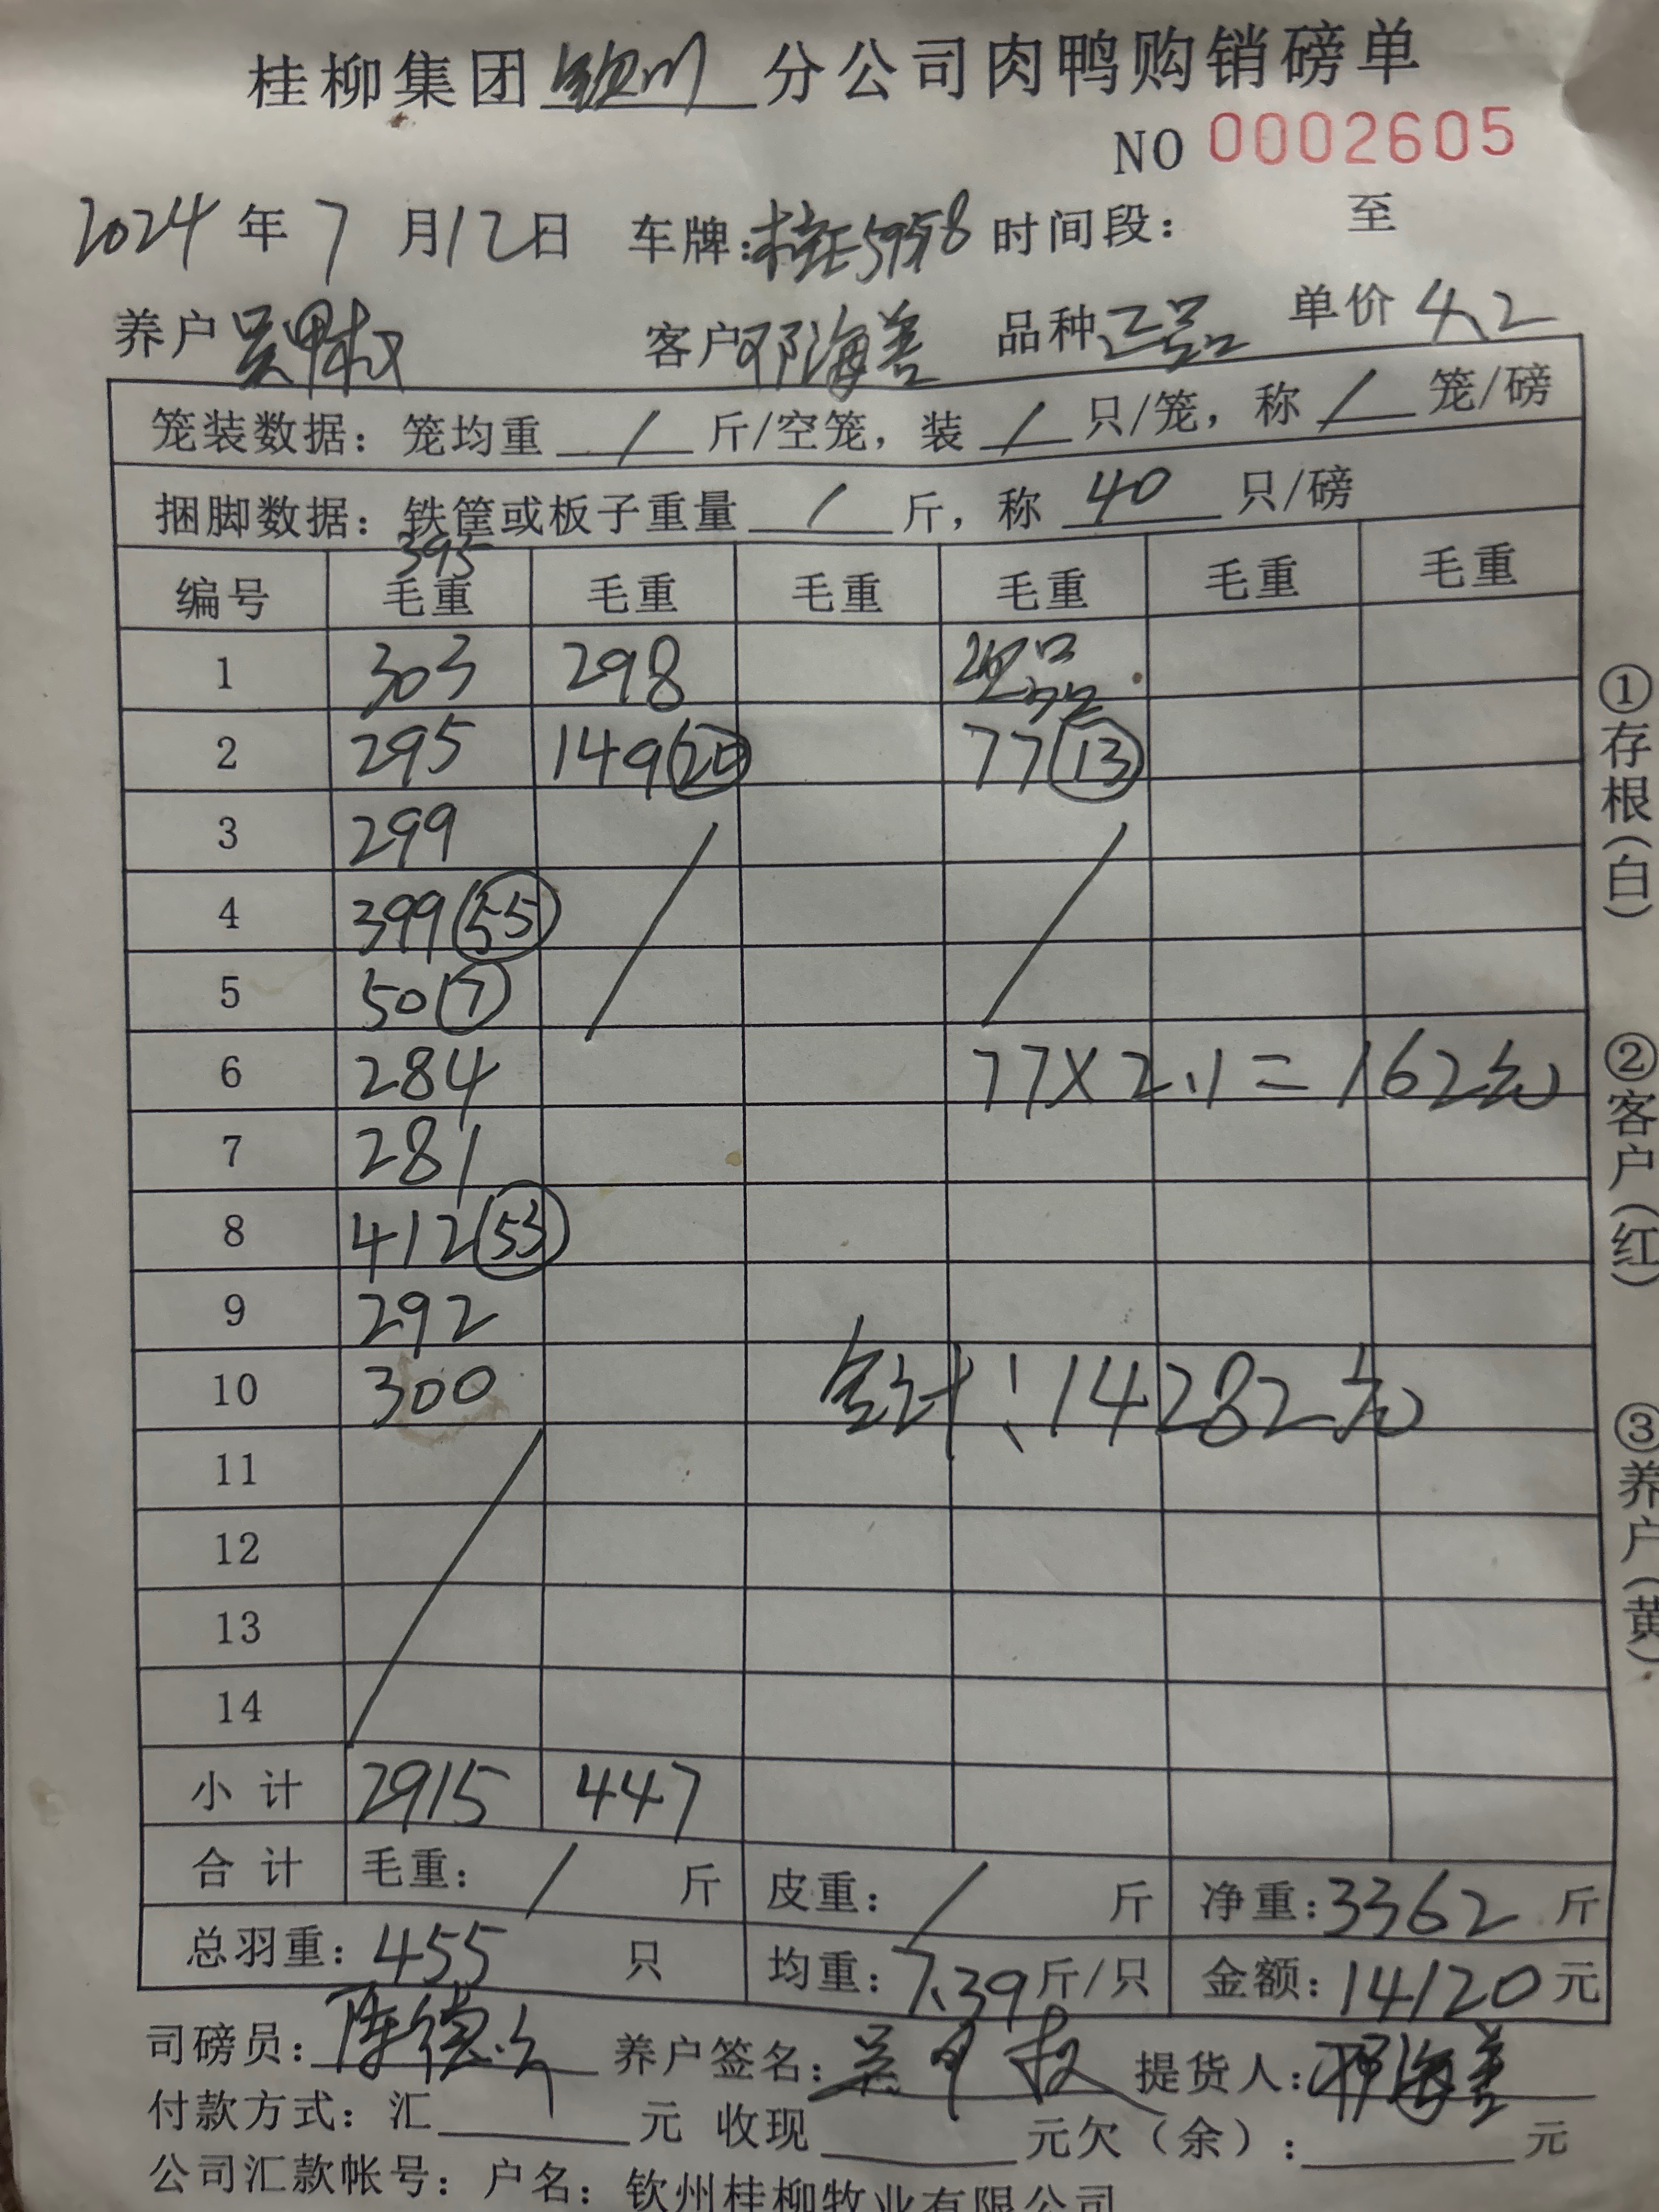 桂柳集团钦州分公司肉鸭购销磅单
NO 0002605
2024年7月12日 车牌: 时间段: 至
养户吴甲权 客户邓海善 品种正品 单价4.2
笼装数据: 笼均重 / 斤/空笼, 装 / 只/笼, 称 / 笼/磅
捆脚数据: 铁筐或板子重量 / 斤, 称 40 只/磅
395
编号 毛重 毛重 毛重 毛重 毛重 毛重
1 303 298
2 295 149(20) 77(13)
3 299
4 399(55)
5 50(7)
6 284 77×2.1=162元
7 281
8 412(53)
9 292
10 300 合计:14282元
11
12
13
14
小计 2915 447
合计 毛重: / 斤 皮重: / 斤 净重:3362斤
总羽重: 455 只 均重:7.39斤/只 金额:14120元
司磅员: 养户签名:吴甲权 提货人:邓海善
付款方式: 汇 元 收现 元欠(余): 元
公司汇款帐号: 户名: 钦州桂柳牧业有限公司
①存根(白)
②客户(红)
③养户(黄)